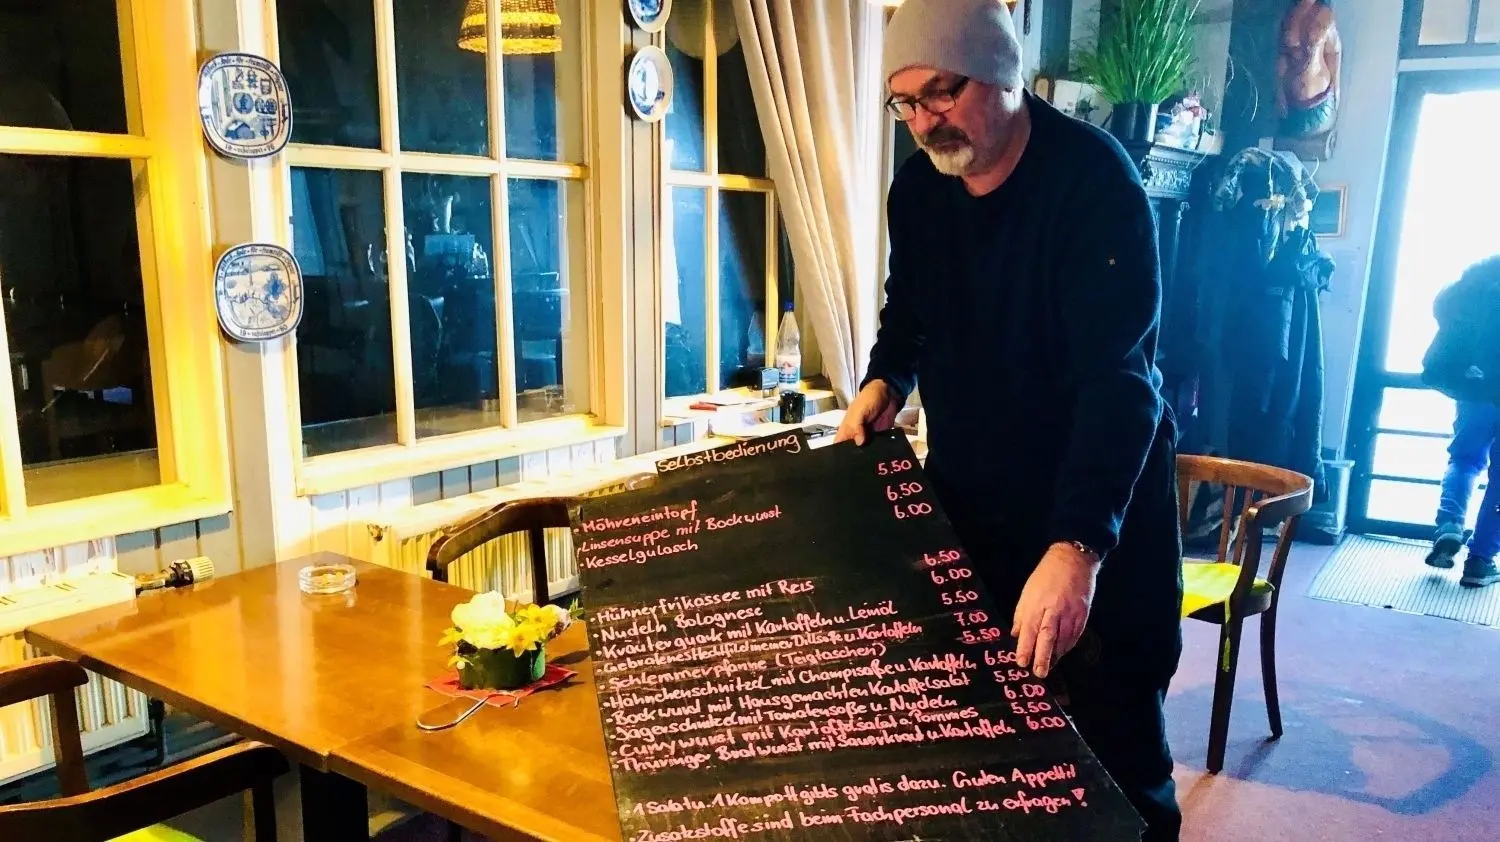 Selbstbedienung
• Möhreneintopf 5.50
• Linsensuppe mit Bockwurst 6.50
• Kesselgulasch 6.00
• Hühnerfrikassee mit Reis 6.50
• Nudeln Bolognese 6.00
• Kräuterquark mit Kartoffeln u. Leinöl 5.50
• Gebratenes Hechtfilet in einer Dillsoße u. Kartoffeln 7.00
• Schlemmerpfanne (Teigtaschen) 5.50
• Hähnchenschnitzel mit Champisoße u. Kartoffeln 6.50
• Bockwurst mit Hausgemachten Kartoffelsalat 5.50
• Jägerschnitzel mit Tomatensoße u. Nudeln 6.00
• Currywurst mit Kartoffelsalat o. Pommes 5.50
• Thüringer Bratwurst mit Sauerkraut u. Kartoffeln 6.00
• 1 Salat u. 1 Kompott gibts gratis dazu. Guten Appetit
• Zusatzstoffe sind beim Fachpersonal zu erfragen!